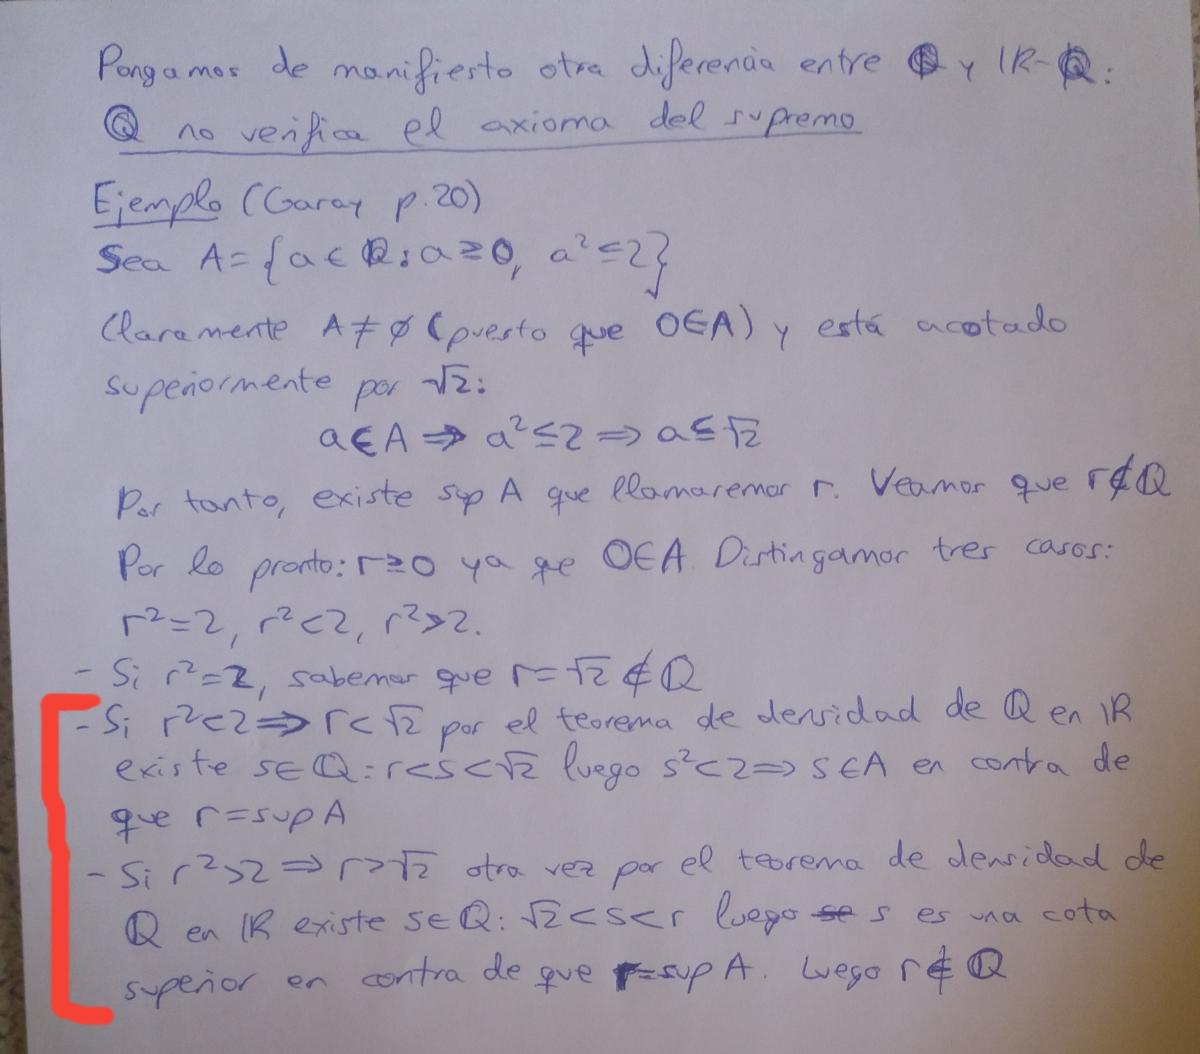 Pongamos de manifiesto otra diferencia entre ℚ y ℝ-ℚ:
ℚ no verifica el axioma del supremo
Ejemplo (Garay p.20)
Sea A={a∈ℚ: a≥0, a²≤2}
Claramente A≠∅ (puesto que 0∈A) y está acotado
superiormente por √2:
a∈A ⇒ a²≤2 ⇒ a≤√2
Por tanto, existe sup A que llamaremos r. Veamos que r∉ℚ
Por lo pronto: r≥0 ya qe 0∈A. Distingamos tres casos:
r²=2, r²<2, r²>2.
- Si r²=2, sabemos que r=√2∉ℚ
- Si r²<2 ⇒ r<√2 por el teorema de densidad de ℚ en ℝ
existe s∈ℚ: r<s<√2 luego s²<2 ⇒ s∈A en contra de
que r=sup A
- Si r²>2 ⇒ r>√2 otra vez por el teorema de densidad de
ℚ en ℝ existe s∈ℚ: √2<s<r luego s es una cota
superior en contra de que r=sup A. Luego r∉ℚ